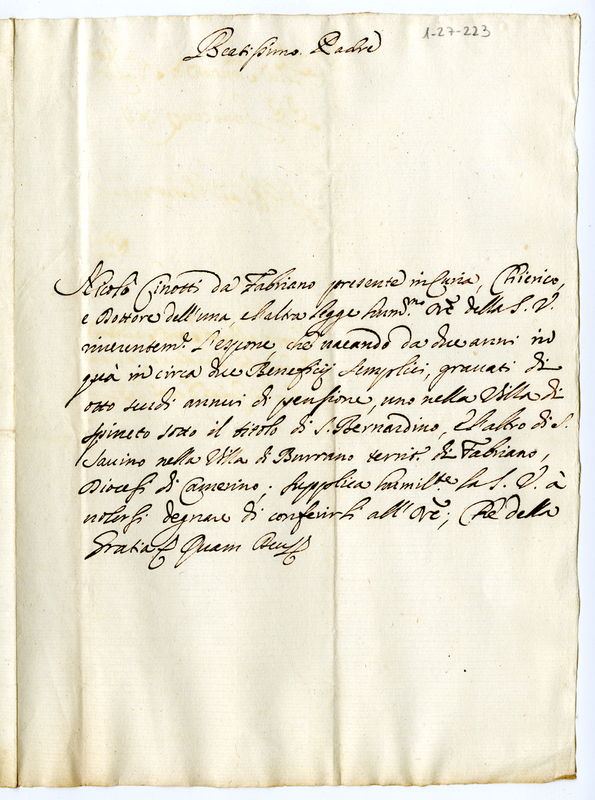 Beatissimo Padre
1-27-223
Nicolò Cinotti da Fabriano presente in Curia, Chierico,
e Dottore dell'una, e l'altra legge hum.mo Ore della S. V.
riverentem.te l'espone, che vacando da due anni in
quà in circa due Beneficij semplici, gravati di
otto scudi annui di pensione, uno nella Villa di
Spineto sotto il titolo di S. Bernardino, e l'altro di S.
Savino nella Villa di Burrano territ.o di Fabriano,
Diocesi di Camerino; supplica humil.te la S. V. à
volersi degnare di conferirli all'Ore; Che della
Gratia Quam Deus